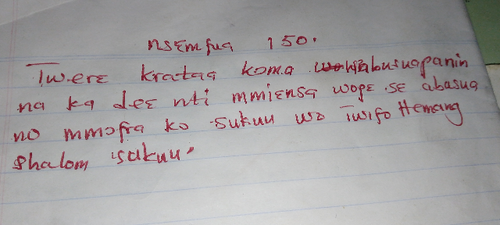 nsɛmfua 150.
Twerɛ krataa koma wo abusuapanin
na ka deɛ nti mmiɛnsa wopɛ sɛ abasua
no mmofra kɔ sukuu wɔ Twifo Hemang
shalom sukuu.